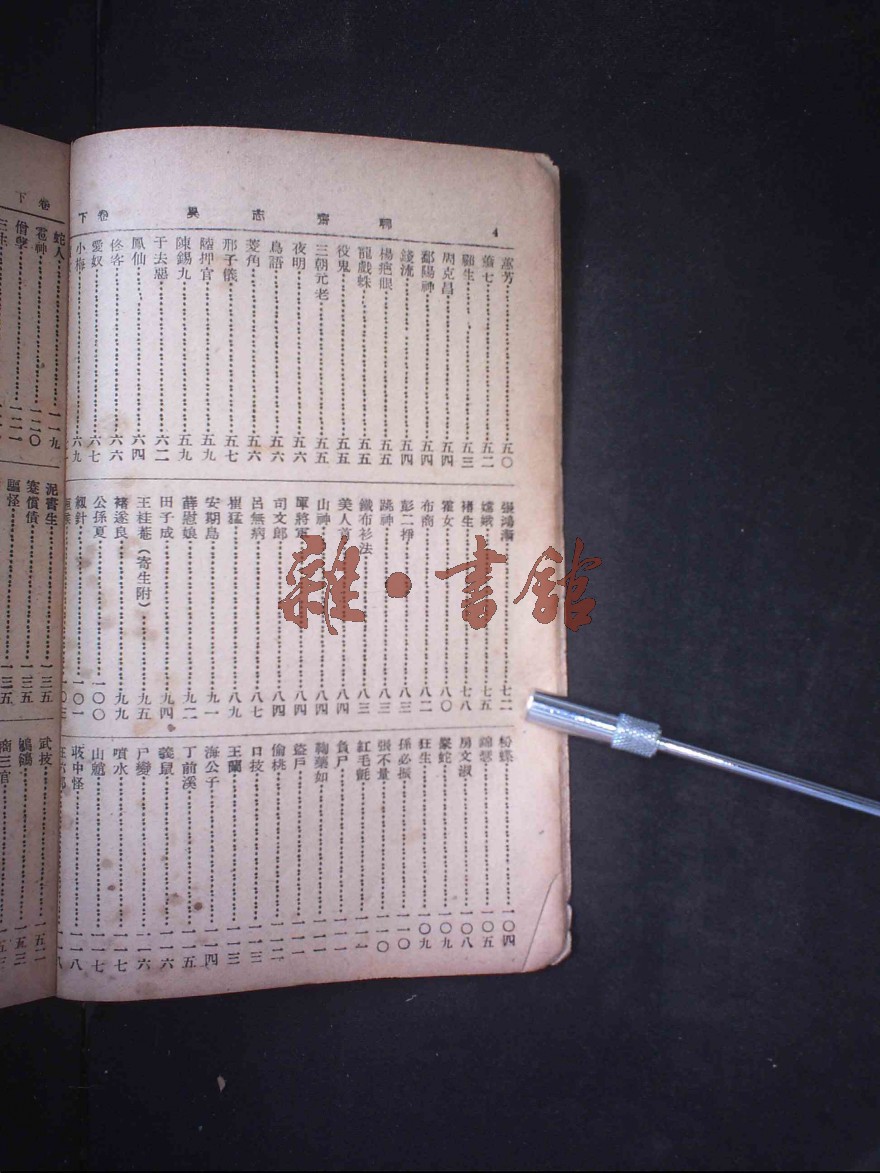 聊齋志異 卷下
4
蕙芳 五〇
蕭七 五二
顧生 五三
周克昌 五四
鄱陽神 五四
錢流 五四
楊疤眼 五五
龍戲蛛 五五
役鬼 五五
三朝元老 五五
夜明 五六
鳥語 五六
菱角 五六
邢子儀 五七
陸押官 五九
陳錫九 五九
于去惡 六二
鳳仙 六四
佟客 六六
愛奴 六七
小梅 六九
張鴻漸 七二
嫦娥 七五
褚生 七八
霍女 八〇
布商 八二
彭二掙 八三
跳神 八三
鐵布衫法 八三
美人首 八四
山神 八四
庫將軍 八四
司文郎 八四
呂無病 八七
崔猛 八九
安期島 九一
薛慰娘 九二
田子成 九四
王桂菴(寄生附) 九五
褚遂良 九九
公孫夏 一〇〇
紉針 一〇一
粉蝶 一〇四
錦瑟 一〇五
房文淑 一〇八
狂生 一〇九
孫必振 一一〇
張不量 一一〇
紅毛氈 一一一
負尸 一一一
鞠藥如 一一一
盜戶
偷桃 一一二
口技 一一三
王蘭 一一三
海公子 一一四
丁前溪 一一五
義鼠 一一六
尸變 一一六
噴水 一一七
山魈 一一七
荍中怪 一一八
卷下
蛇人 一一九
雹神 一二〇
僧孽 一二一
泥書生 一三五
蹇償債 一三五
驅怪 一三五
武技 一五二
鴝鵒 一五三
商三官
雜·書館